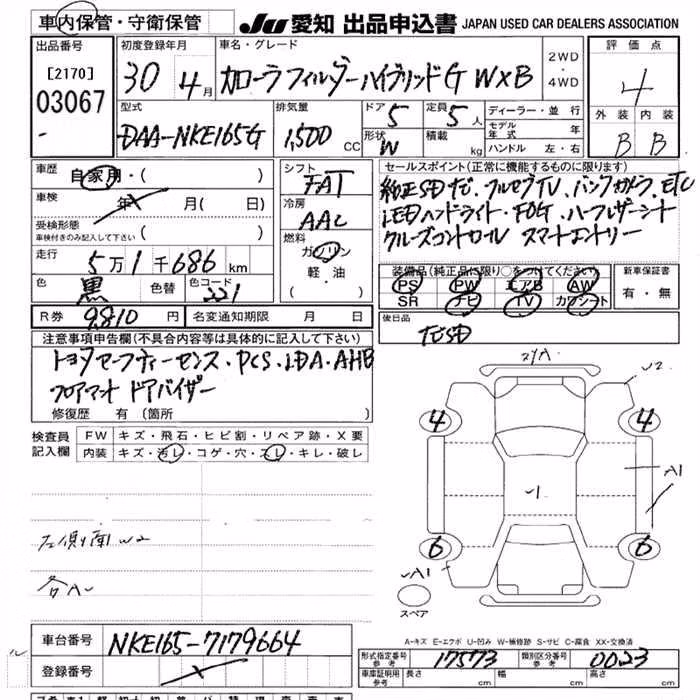 車内保管・守衛保管
JU 愛知 出品申込書 JAPAN USED CAR DEALERS ASSOCIATION
出品番号
[2170]
03067
-
初度登録年月
30 4月
車名・グレード
カローラフィルダーハイブリッドG W×B
2WD
・
4WD
評価点
4
外装 内装
B B
型式
DAA-NKE165G
排気量
1,500 CC
ドア
5
定員
5人
形状
W
積載
kg
ディーラー・並行
モデル年式 年
ハンドル 左・右
車歴 自家用・( )
車検 年 月(日)
受検形態
車検付きのみ記入して下さい ( )
走行 5万1千686km
色 黒 色替 色コード 221
R券 9,810円 名変通知期限 月 日
シフト
FAT
冷房
AAC
燃料
ガソリン
軽・油
( )
セールスポイント(正常に機能するものに限ります)
純正SDナビ、フルセグTV、バックカメラ、ETC
LEDヘッドライト・FOG、ハーフレザーシート
クルーズコントロール スマートエントリー
装備品(純正品に限り○をつけてください)
PS PW エアB AW
SR ナビ TV カワシート
新車保証書
有・無
後日品
注意事項申告欄(不具合内容等は具体的に記入して下さい)
トヨタセーフティーセンス・PCS・LDA・AHB
フロアマット ドアバイザー
修復歴 有(箇所 )
検査員
記入欄
FW キズ・飛石・ヒビ割・リペア跡・X要
内装 キズ・汚レ・コゲ・穴・スレ・キレ・破レ
左側面W2
各A
2/A
W2
4
4
A1
1
6
6
A1
スペア
A-キズ E-エクボ U-凹み W-補修跡 S-サビ C-腐食 XX-交換済
車台番号 NKE165-7179664
登録番号
形式指定番号
参考
17573
類別区分番号
参考
0023
車庫証明用
参考
長さ cm 幅 cm 高さ cm